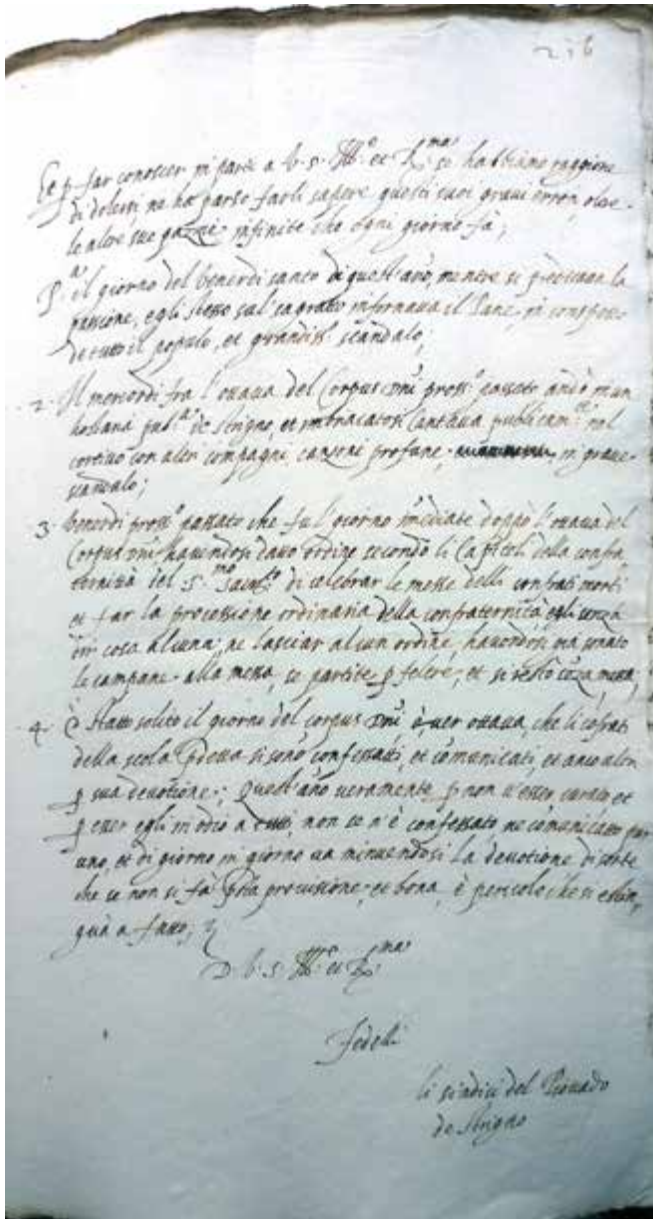 216
Et p far conoscer in parte a V. S. Ill.e et R.ma se habbiamo raggione
di dolersi ne ha parso farli sapere questi suoi gravi errori, oltre
le altre sue infinite che ogni giorno fà,
P.a il giorno del Venerdi santo di quest'año, mentre si predicava la
passione, egli stesso sul sagratto infornava il Pane, in conspetto
de tutto il populo, et grandiss.o scandalo,
2. Il mercordi fra l'ottava del Corpus Dñi pross.o passato andò in un
hostaria pub.a de strigno, et imbriacatosi cantava publicam.te nel
cortivo con altri compagni, canzoni profane, in grave
scandalo;
3. Venerdi pross.o passato che fu l'giorno imediate doppò l'ottava del
Corpus Dñi havendosi dato ordine secondo li Capitoli della confra
ternità del S.mo Sacm.to di celebrar le messe delli confrati morti
et far la processione ordinaria della confraternità, egli senza
dir cosa alcuna, ne lasciar alcun ordine, havendosi già sonato
le campane alla messa, se partite p feltre, et si restò senza messa,
4. È stato solito il giorno del corpus Dñi, ò ver ottava, che li cofrati
della scola si sono confessatti, et comunicati, et anco altri
p sua devotione; Quest'año veramente p non v'esser curato, et
p esser egli in odio a tutti, non se n'è confessato ne comunicatto pur
uno, et di giorno in giorno va minuendosi la devotione, di sorte
che se non si fà provisione, et bona, è pericolo che si estin
gua a fatto,
D. V. S. Ill.e et R.ma
fedeli
li sindici del Piovado
de Strigno